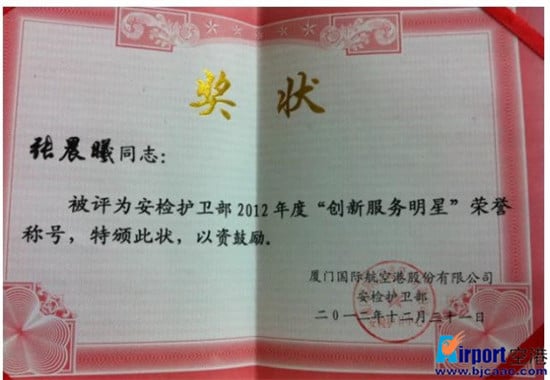 奖状
张晨曦同志：
被评为安检护卫部2012年度“创新服务明星”荣誉
称号，特颁此状，以资鼓励。
厦门国际航空港股份有限公司
安检护卫部
二〇一二年十二月三十一日
Airport空港
www.bjcaac.com